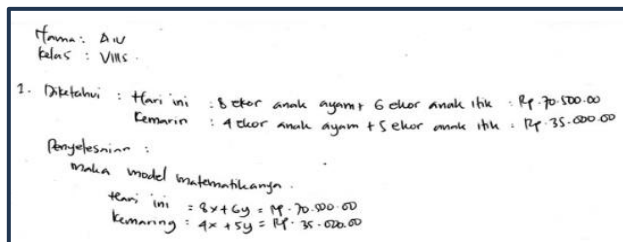 Nama : AIV
Kelas : VIIIS
1. Diketahui : Hari ini : 8 ekor anak ayam + 6 ekor anak itik : Rp. 70.500.00
Kemarin : 4 ekor anak ayam + 5 ekor anak itik = Rp. 35.000.00
Penyelesaian :
maka model matematikanya.
Hari ini = 8x + 6y = Rp. 70.500.00
Kemaring : 4x + 5y = Rp. 35.000.00